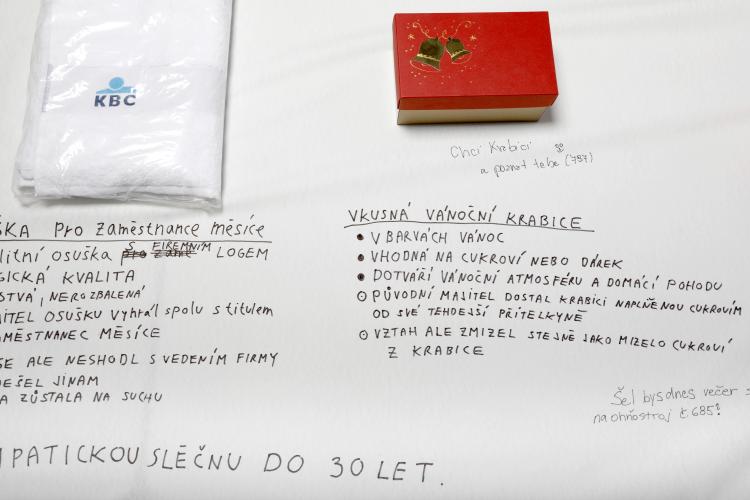 KBC
Chci Krabici
a poznat tebe (787)
ŠKA Pro Zaměstnance měsíce
litní osuška S FIREMNÍM LOGEM
GICKÁ KVALITA
STVÁ, NEROZBALENÁ
ITEL OSUŠKU vyhrál spolu s titulem
MĚSTNANEC MĚSÍCE
SE ALE NESHODL S VEDENÍM FIRMY
DEŠEL JINAM
A ZŮSTALA NA SUCHU
VKUSNÁ VÁNOČNÍ KRABICE
• V BARVÁCH VÁNOC
• VHODNÁ NA CUKROVÍ NEBO DÁREK
• DOTVÁŘÍ VÁNOČNÍ ATMOSFÉRU A DOMÁCÍ POHODU
• PŮVODNÍ MAJITEL DOSTAL KRABICI NAPLNĚNOU CUKROVÍM
OD SVÉ TEHDEJŠÍ PŘÍTELKYNĚ
• VZTAH ALE ZMIZEL STEJNĚ JAKO MIZELO CUKROVÍ
Z KRABICE
Šel bys dnes večer s
na ohňostroj č. 685?
IPATICKOU SLEČNU DO 30 LET.